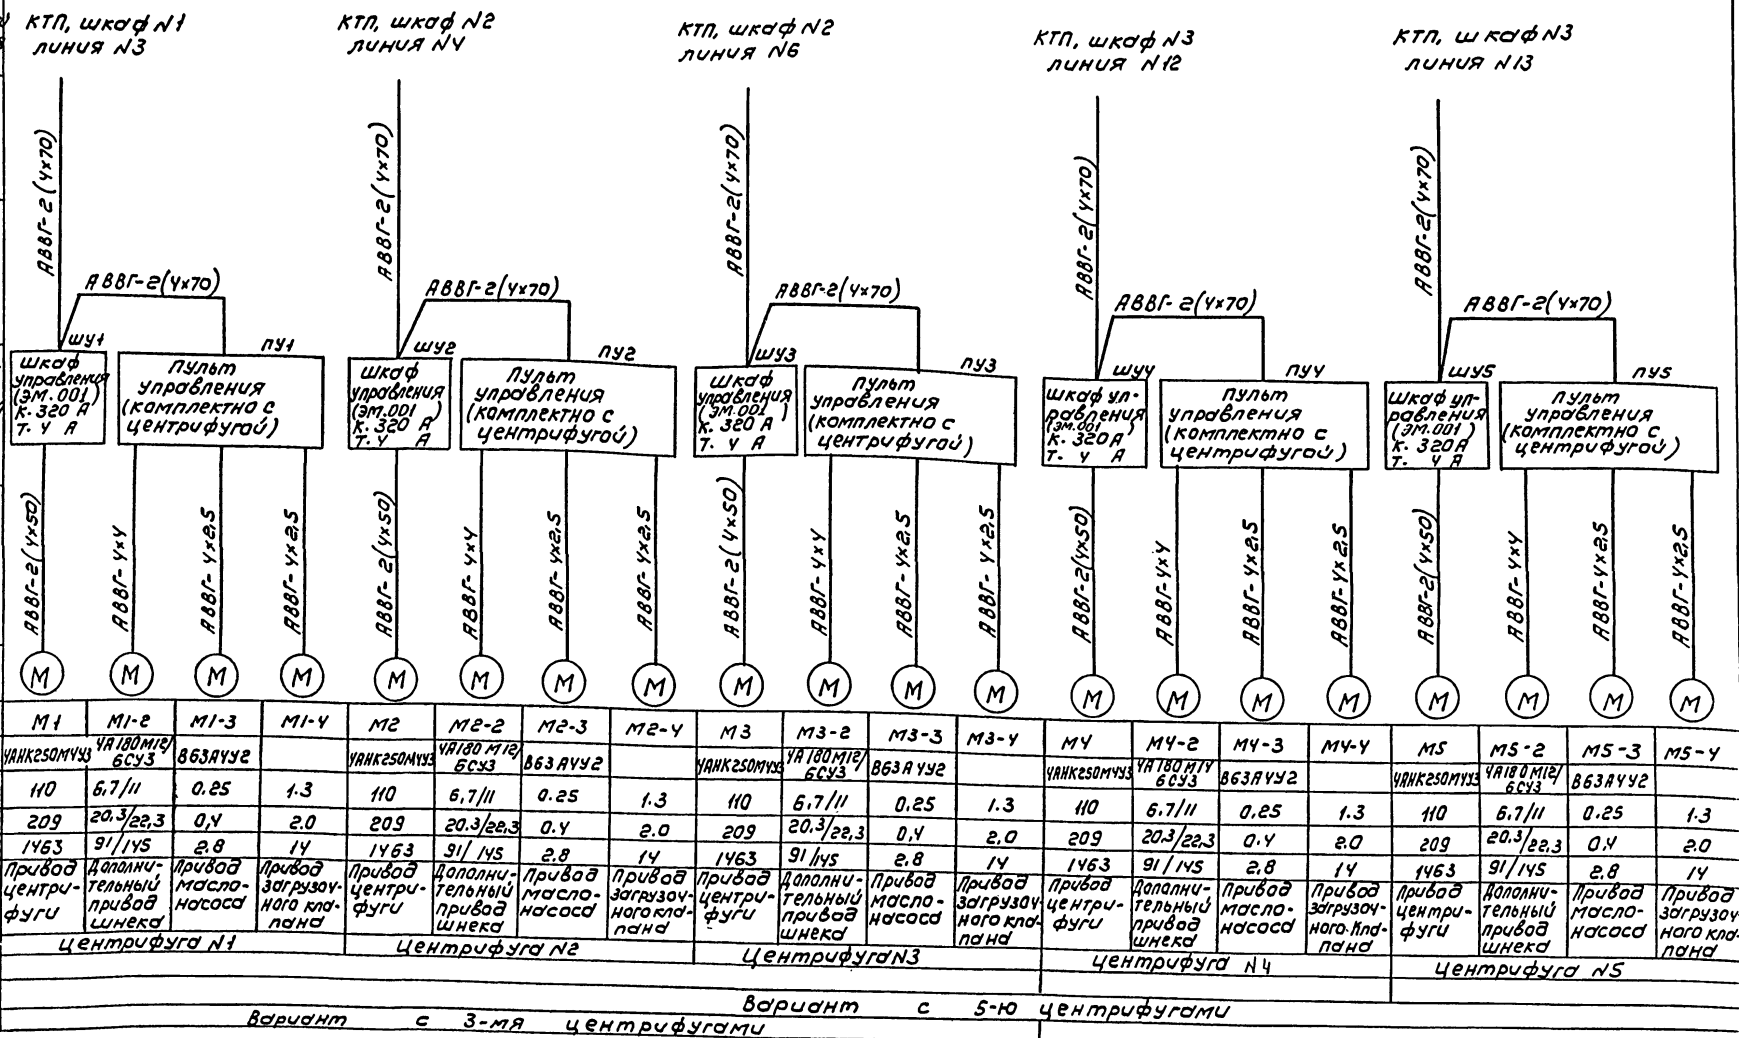 КТП, шкаф N1
линия N3
КТП, шкаф N2
линия N4
КТП, шкаф N2
линия N6
КТП, шкаф N3
линия N12
КТП, шкаф N3
линия N13
АВВГ-2(4х70)
АВВГ-2(4х70)
АВВГ-2(4х70)
АВВГ-2(4х70)
АВВГ-2(4х70)
АВВГ-2(4х70)
АВВГ-2(4х70)
АВВГ-2(4х70)
АВВГ-2(4х70)
АВВГ-2(4х70)
шу1 пу1 шу2 пу2 шу3 пу3 шу4 пу4 шу5 пу5
шкаф
управления
(ЭМ.001)
К. 320 А
Т. 4 А
пульт
управления
(комплектно с
центрифугой)
шкаф
управления
(ЭМ.001)
К. 320 А
Т. 4 А
пульт
управления
(комплектно с
центрифугой)
шкаф
управления
(ЭМ.001)
К. 320 А
Т. 4 А
пульт
управления
(комплектно с
центрифугой)
шкаф уп-
равления
(ЭМ.001)
К. 320А
Т. 4 А
пульт
управления
(комплектно с
центрифугой)
шкаф уп-
равления
(ЭМ.001)
К. 320А
Т. 4 А
пульт
управления
(комплектно с
центрифугой)
АВВГ-2(4х50)
АВВГ-4х4
АВВГ-4х2,5
АВВГ-4х2,5
АВВГ-2(4х50)
АВВГ-4х4
АВВГ-4х2,5
АВВГ-4х2,5
АВВГ-2(4х50)
АВВГ-4х4
АВВГ-4х2,5
АВВГ-4х2,5
АВВГ-2(4х50)
АВВГ-4х4
АВВГ-4х2,5
АВВГ-4х2,5
АВВГ-2(4х50)
АВВГ-4х4
АВВГ-4х2,5
АВВГ-4х2,5
М М М М М М М М М М М М М М М М М М М М
М1 М1-2 М1-3 М1-4 М2 М2-2 М2-3 М2-4 М3 М3-2 М3-3 М3-4 М4 М4-2 М4-3 М4-4 М5 М5-2 М5-3 М5-4
4АНК250М4У3 4А180М12/6СУ3 В63А4У2 4АНК250М4У3 4А180М12/6СУ3 В63А4У2 4АНК250М4У3 4А180М12/6СУ3 В63А4У2 4АНК250М4У3 4А180М14/6СУ3 В63А4У2 4АНК250М4У3 4А180М12/6СУ3 В63А4У2
110 6,7/11 0.25 1.3 110 6,7/11 0.25 1.3 110 6,7/11 0.25 1.3 110 6.7/11 0,25 1.3 110 6,7/11 0.25 1.3
209 20.3/22,3 0,4 2.0 209 20.3/22,3 0.4 2.0 209 20.3/22,3 0,4 2,0 209 20.3/22,3 0.4 2.0 209 20.3/22,3 0.4 2.0
1463 91/145 2.8 14 1463 91/145 2,8 14 1463 91/145 2,8 14 1463 91/145 2,8 14 1463 91/145 2,8 14
Привод
центри-
фуги
Дополни-
тельный
привод
шнека
Привод
масло-
насоса
Привод
загрузоч-
ного кла-
пана
Привод
центри-
фуги
Дополни-
тельный
привод
шнека
Привод
масло-
насоса
Привод
загрузоч-
ного кла-
пана
Привод
центри-
фуги
Дополни-
тельный
привод
шнека
Привод
масло-
насоса
Привод
загрузоч-
ного кла-
пана
Привод
центри-
фуги
Дополни-
тельный
привод
шнека
Привод
масло-
насоса
Привод
загрузоч-
ного кла-
пана
Привод
центри-
фуги
Дополни-
тельный
привод
шнека
Привод
масло-
насоса
Привод
загрузоч-
ного кла-
пана
Центрифуга N1 Центрифуга N2 Центрифуга N3 Центрифуга N4 Центрифуга N5
Вариант с 5-ю центрифугами
Вариант с 3-мя центрифугами